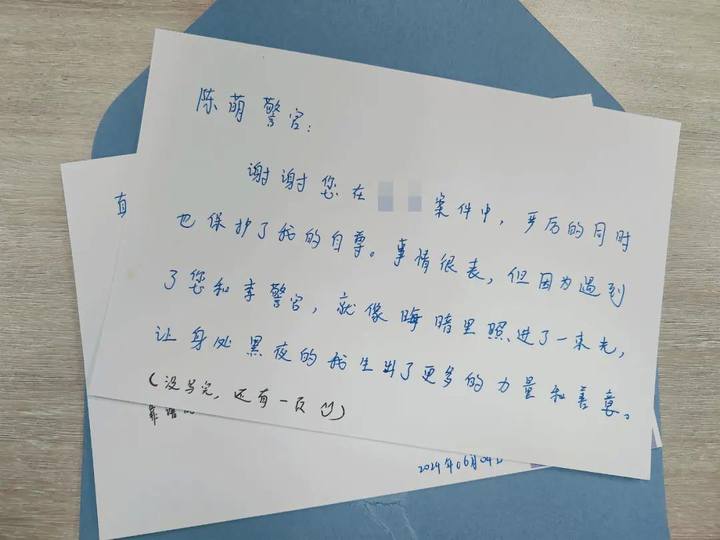 陈萌警官:
谢谢您在 案件中,严厉的同时
也保护了我的自尊。事情很丧,但因为遇到
了您和李警官,就像晦暗里照进了一束光,
让身处黑夜的我生出了更多的力量和善意。
(没写完,还有一页)
2024年06月04日